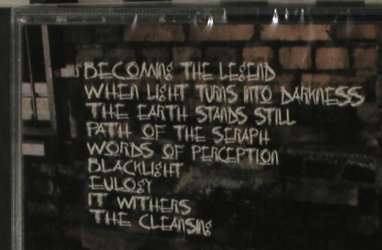 BECOMING THE LEGEND
WHEN LIGHT TURNS INTO DARKNESS
THE EARTH STANDS STILL
PATH OF THE SERAPH
WORDS OF PERCEPTION
BLACKLIGHT
EULOGY
IT WITHERS
THE CLEANSING